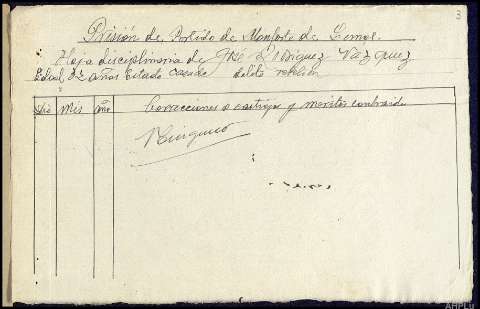 3
Prisión de Partido de Monforte de Lemos.
Hoja disciplinaria de José Rodriguez Vázquez
Edad 32 años Estado casado delito rebelión
Dia Mes año Correcciones o castigos y meritos contraidos
Ninguno
AHPLu